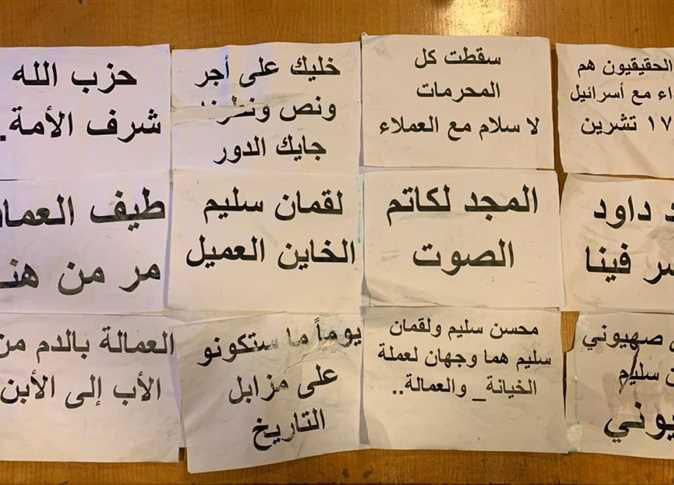 الحقيقيون هم
مع أسرائيل
١٧ تشرين
سقطت كل
المحرمات
لا سلام مع العملاء
خليك على أجر
ونص
جايك الدور
حزب الله
شرف الأمة.
داود
فينا
المجد لكاتم
الصوت
لقمان سليم
الخاين العميل
طيف العما
مر من هنـ
صهيوني
سليم
يوني
محسن سليم ولقمان
سليم هما وجهان لعملة
الخيانة_ والعمالة..
يوماً ما ستكونو
على مزابل
التاريخ
العمالة بالدم من
الأب إلى الأبن